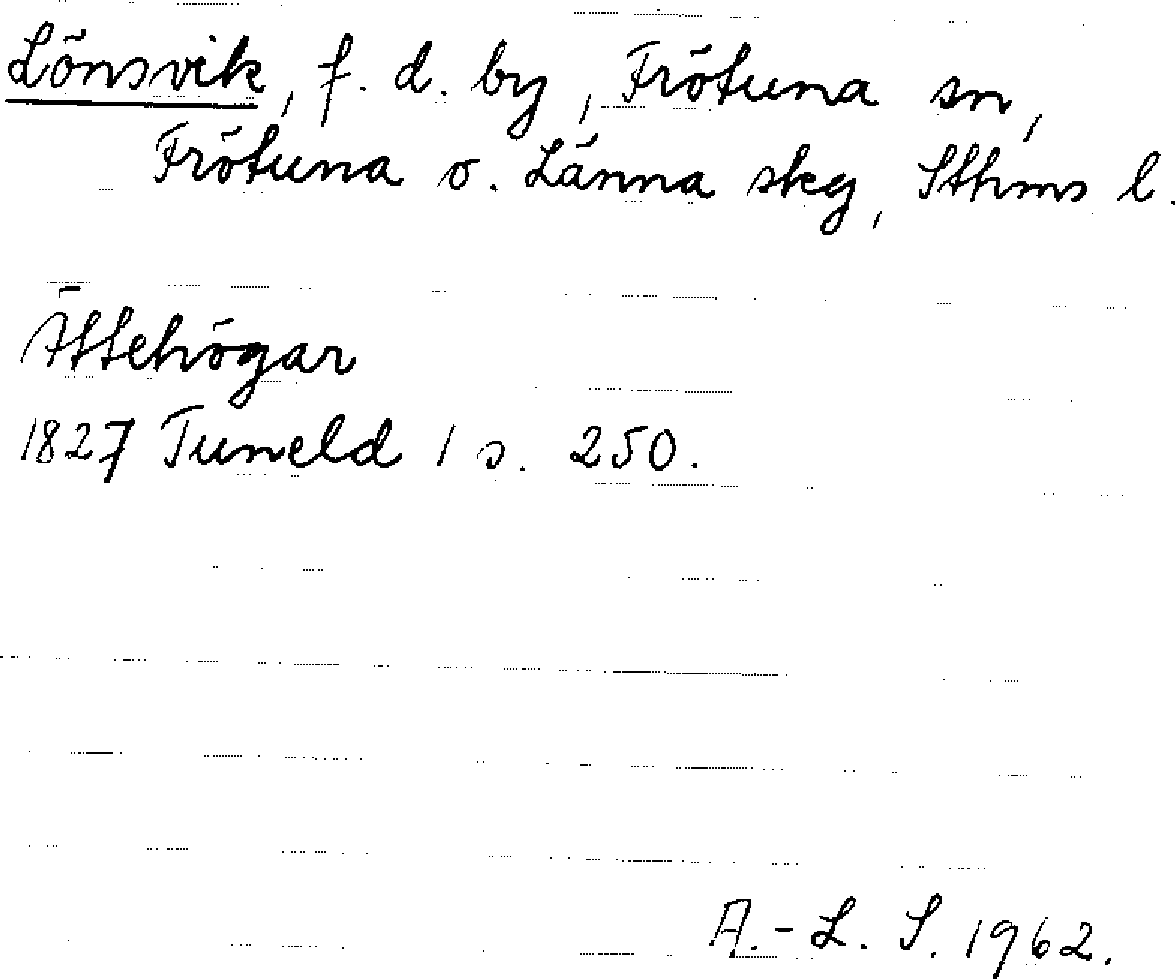 Lönsvik, f. d. by, Frötuna sn,
Frötuna o. Länna skg, Sthms l.
Ättehögar
1827 Tuneld 1 s. 250.
A.-L. S. 1962.